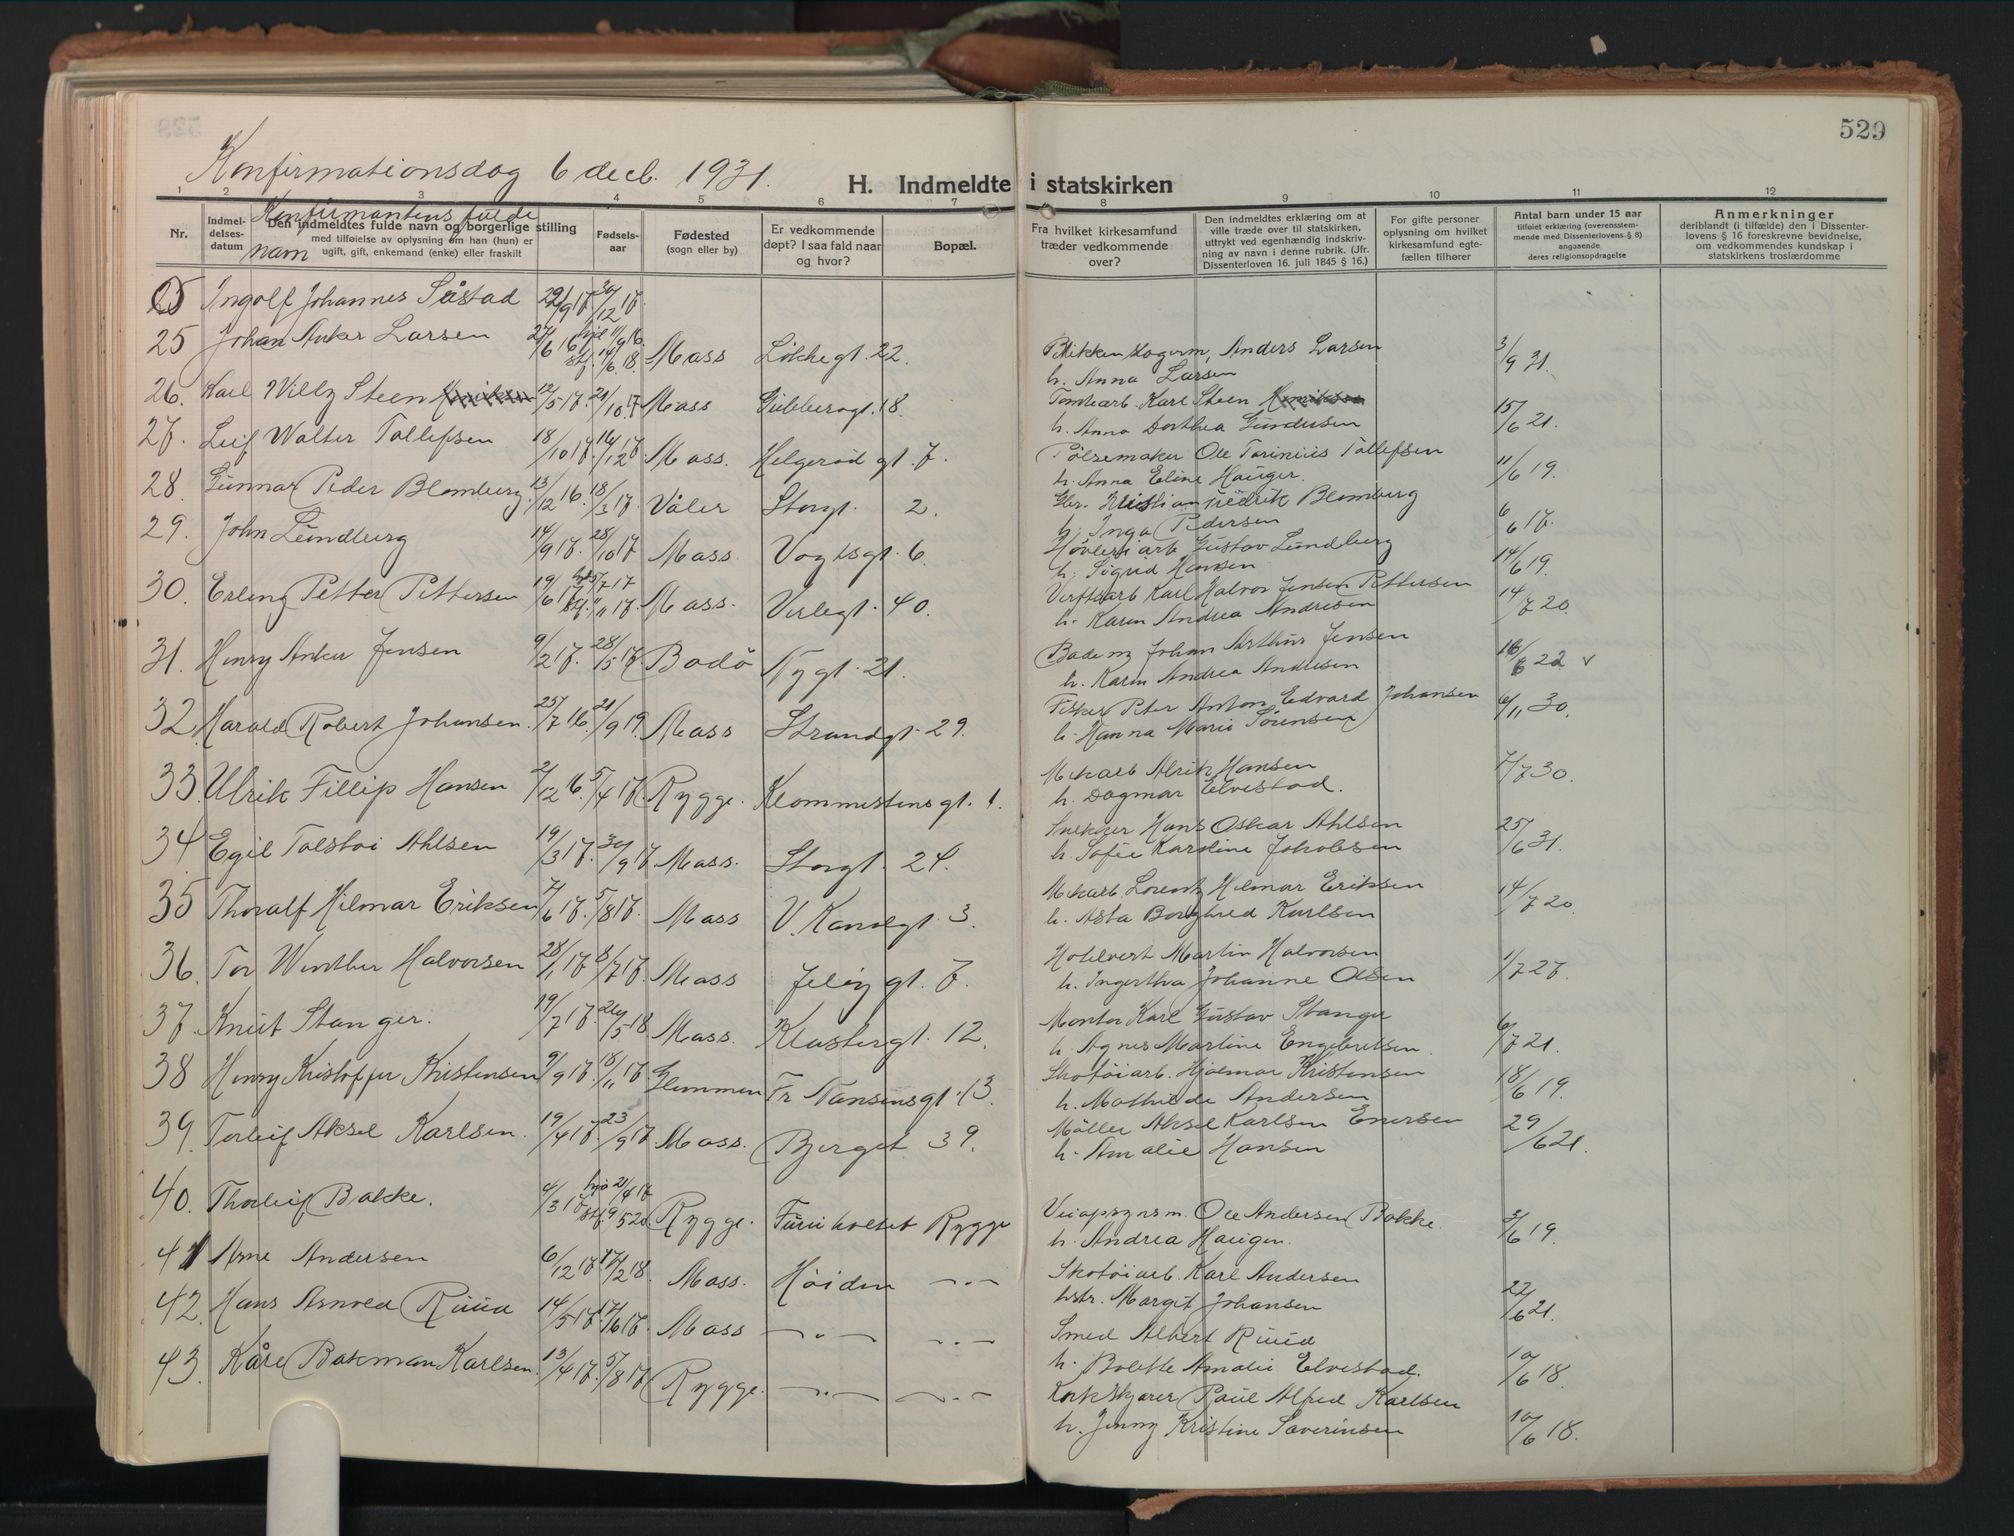 529
Konfirmationsdag 6 decb. 1931.
H. Indmeldte i statskirken
1 2 3 4 5 6 7 8 9 10 11 12
Nr.
Indmel-
delses-
datum
Konfirmantens fulde
Den indmeldtes fulde navn og borgerlige stilling
med tilføielse av oplysning om han (hun) er
navn
ugift, gift, enkemand (enke) eller fraskilt
Fødsels-
aar
Fødested
(sogn eller by)
Er vedkommende
døpt? I saa fald naar
og hvor?
Bopæl.
Fra hvilket kirkesamfund
træder vedkommende
over?
Den indmeldtes erklæring om at
ville træde over til statskirken,
uttrykt ved egenhændig indskriv-
ning av navn i denne rubrik. (Jfr.
Dissenterloven 16. juli 1845 § 16.)
For gifte personer
oplysning om hvilket
kirkesamfund egte-
fællen tilhører
Antal barn under 15 aar
tilføiet erklæring (overensstem-
mende med Dissenterlovens § 8)
angaaende
deres religionsopdragelse
Anmerkninger
deriblandt (i tilfælde) den i Dissenter-
lovens § 16 foreskrevne bevidnelse,
om vedkommendes kundskap i
statskirkens troslærdomme
Ingolf Johannes Såstad 29/9 17. 30/12 17
25 Johan Anker Larsen 27/6 16 hjd 11/9 16. stf. 14/6 18. Moss Løkkegt. 22. Blikkenslagerm, Anders Larsen 3/9 31.
h. Anna Larsen
26. Karl Willy Steen 12/5 17. 21/10 17 Moss Gubberogt. 18. Tomtearb. Karl Steen 15/6 21.
h. Anna Dorthea Gundersen
27. Leif Walter Tollefsen 18/10 17. 16/12 17 Moss. Helgerød gt. 7. Pølsemaker Ole Torinius Tollefsen 11/6 19.
h. Anna Eline Hauger.
28. Gunnar Peder Blomberg. 13/12 16. 18/3 17. Våler Storgt. 2. Kristian Fredrik Blomberg 6/6 17.
h. Inga Pedersen
29. John Lundberg 14/9 17. 28/10 17 Moss. Vogtsgt. 6. Høvleriarb Gustav Lundberg 14/6 19.
h. Sigrid Hansen
30. Erling Petter Pettersen 19/6 17 17. Moss. Verlegt. 40. Verftsarb Karl Halvor Jensen Pettersen 14/7 20
h. Karen Andrea Andresen
31. Henry Anker Jensen 9/2 17. 28/5 17. Bodö Nygt. 21. Bademr Johan Arthur Jensen 22 v
h. Karen Andrea Andresen
32 Harald Robert Johansen. 25/7 16. 21/9 19. Moss Strandgt. 29. Fisker Peter Anton Edvard Johansen 6/11 30.
h. Hanna Marie Sørensen
33. Ulrik Fillip Hansen 2/12 16. 5/4 17. Rygge. Klommestensgt. 1. Mekarb Alrik Hansen 7/7 30.
h. Dagmar Elvestad.
34 Egil Tolstoi Ahlsen 19/3 17. 30/9 17 Moss. Storgt. 24. Snekker Hans Oskar Ahlsen 25/6 31.
h. Sofie Karoline Jakobsen
35 Thoralf Hilmar Eriksen 7/6 17. 5/8 17. Moss V. Kanalgt. 3. Mekarb Lorentz Hilmar Eriksen 14/7 20.
h. Asta Borghild Karlsen
36. Tor Winther Halvorsen 28/1 17 8/7 17. Moss Jeløygt. 7. Hotelvert Martin Halvorsen 1/7 27.
h. Ingertha Johanne Olsen
37. Knut Stanger. 19/7 17. 26/5 18 Moss. Klostergt. 12. Montør Karl Gustav Stanger 6/7 21.
h. Agnes Martine Engebretsen.
38 Henry Kristoffer Kristensen 9/9 17. 18/11 17 Glemmen Fr Nansensgt. 13. Skotøiarb. Hjalmar Kristensen 18/6 19.
h. Mathilde Andersen
39. Torleif Aksel Karlsen. 19/4 17. 23/9 17. Moss. Bjerget 39. Møller Aksel Karlsen Enersen 29/6 21.
h. Amalie Hansen
40. Thorleif Bakke. 4/3 17 hjd 21/4 17 stf. 9/5 20. Rygge. Furuholtet Rygge Veiopsynsm. Ole Andersen Bakke. 3/6 19.
h. Andrea Haugen.
41 Arne Andersen 6/12 17 17/2 18. Moss. Høiden —·— Skotøiarb. Karl Andersen 22/6 21.
hstr. Margit Johansen
42. Hans Arnold Ruud 14/5 17. 17/6 17. Moss —·— —·— Smed Albert Ruud 10/6 18.
h. Bolette Amalie Elvestad.
43. Kåre Bakman Karlsen. 13/4 17. 5/8 17 Rygge. —·— —·— Korkskjærer Paul Alfred Karlsen 10/6 18.
h. Jenny Kristine Saverinsen